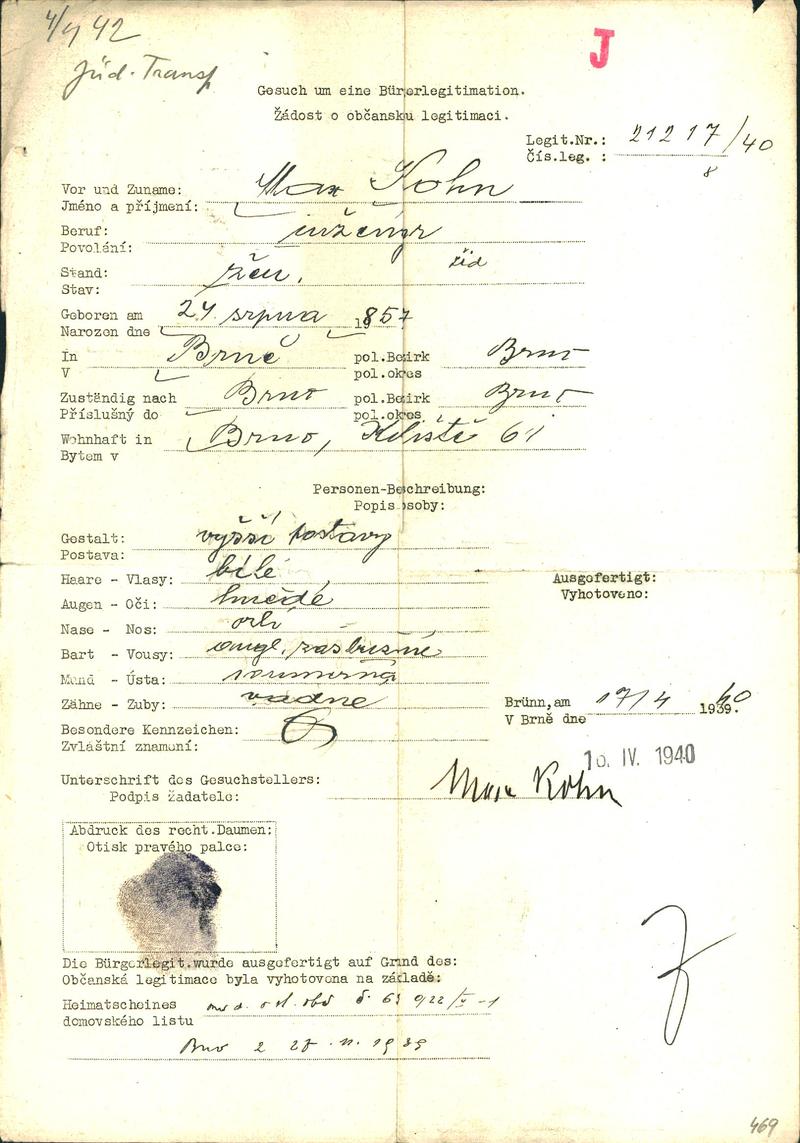 4/4 42
Jüd. Transp
J
Gesuch um eine Bürgerlegitimation.
Žádost o občansku legitimaci.
Legit.Nr.: 21217/40
Čís.leg. :
8
Vor und Zuname: Max Kohn
Jméno a příjmení:
Beruf: inženýr
Povolání:
Stand: žen. žid
Stav:
Geboren am 24 srpna 1857
Narozen dne
In Brně pol.Bezirk Brno
V pol.okres
Zuständig nach Brno pol.Bezirk Brno
Příslušný do pol.okres
Wohnhaft in Brno, 61
Bytem v
Personen-Beschreibung:
Popis osoby:
Gestalt: vyšší postavy
Postava:
Haare - Vlasy: bílé
Augen - Oči: hnědé
Nase - Nos: orlí
Bart - Vousy: angl.
Mund - Ústa: souměrná
Zähne - Zuby: vadné
Besondere Kennzeichen:
Zvláštní znamení:
Ausgefertigt:
Vyhotoveno:
Brünn,am 17/4 1940
V Brně dne
16. IV. 1940
Unterschrift des Gesuchstellers: Max Kohn
Podpis žadatele:
Abdruck des recht.Daumen:
Otisk pravého palce:
Die Bürgerlegit.wurde ausgefertigt auf Grund des:
Občanská legitimace byla vyhotovena na základě:
Heimatscheines
domovského listu
Brno 1939
469